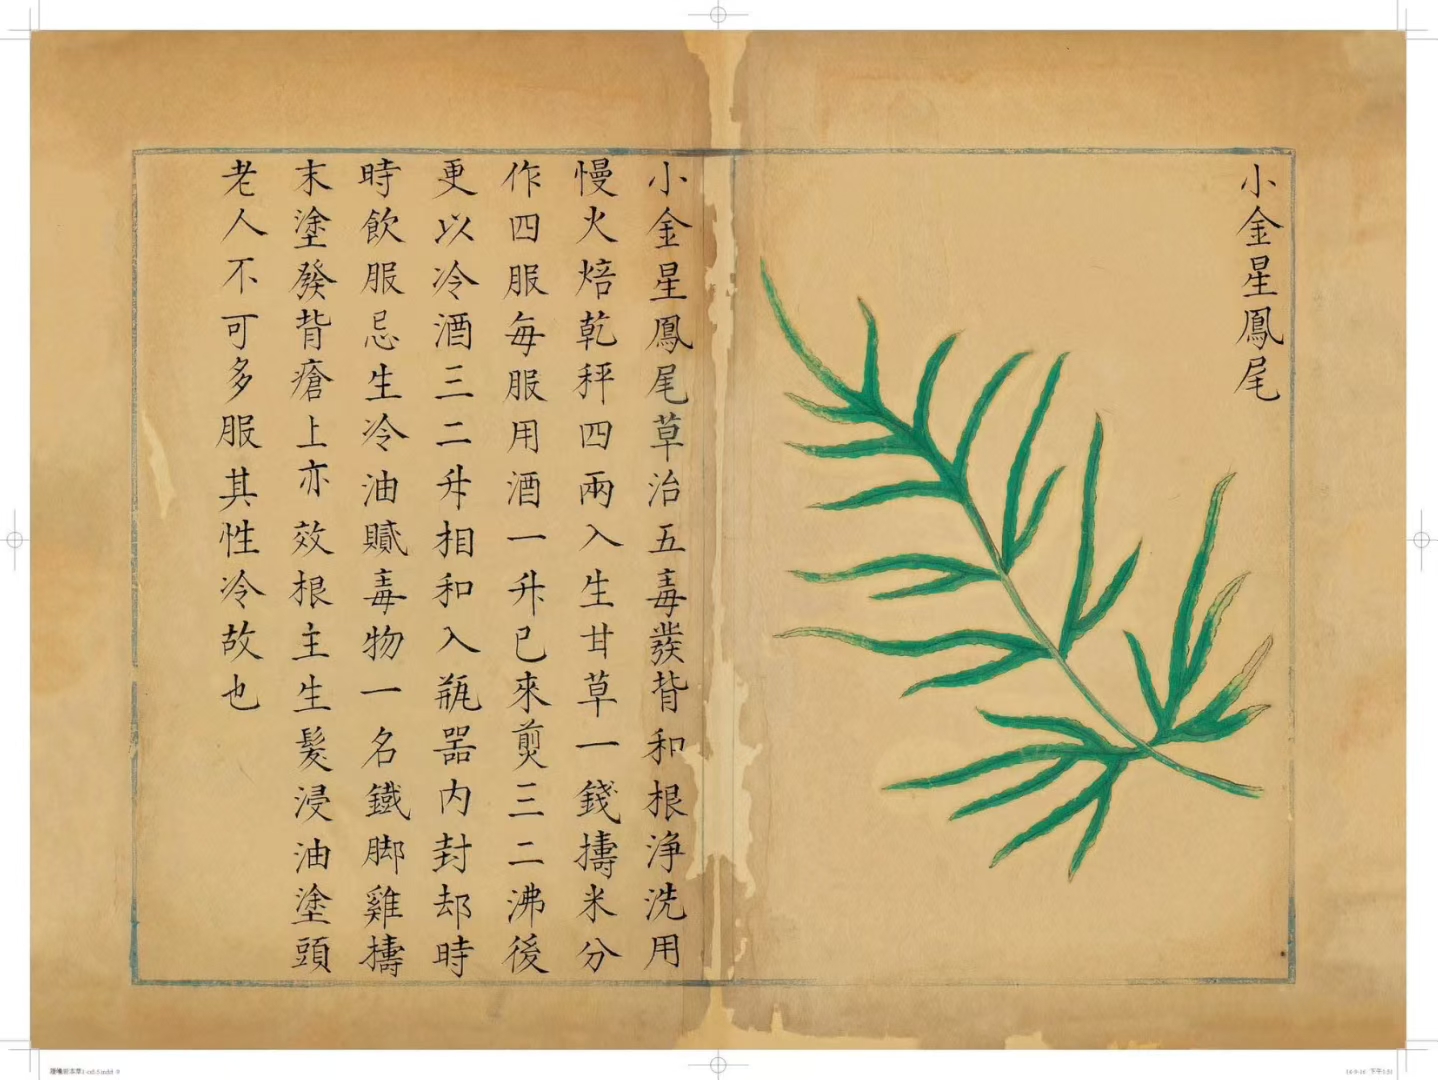 小金星鳳尾
小金星鳳尾草治五毒發背和根浄洗用
慢火焙乾秤四兩入生甘草一錢擣末分
作四服每服用酒一升已來煎三二沸後
更以冷酒三二升相和入瓶器内封却時
時飲服忌生冷油膩毒物一名鐵脚雞擣
末塗發背瘡上亦效根主生髮浸油塗頭
老人不可多服其性冷故也